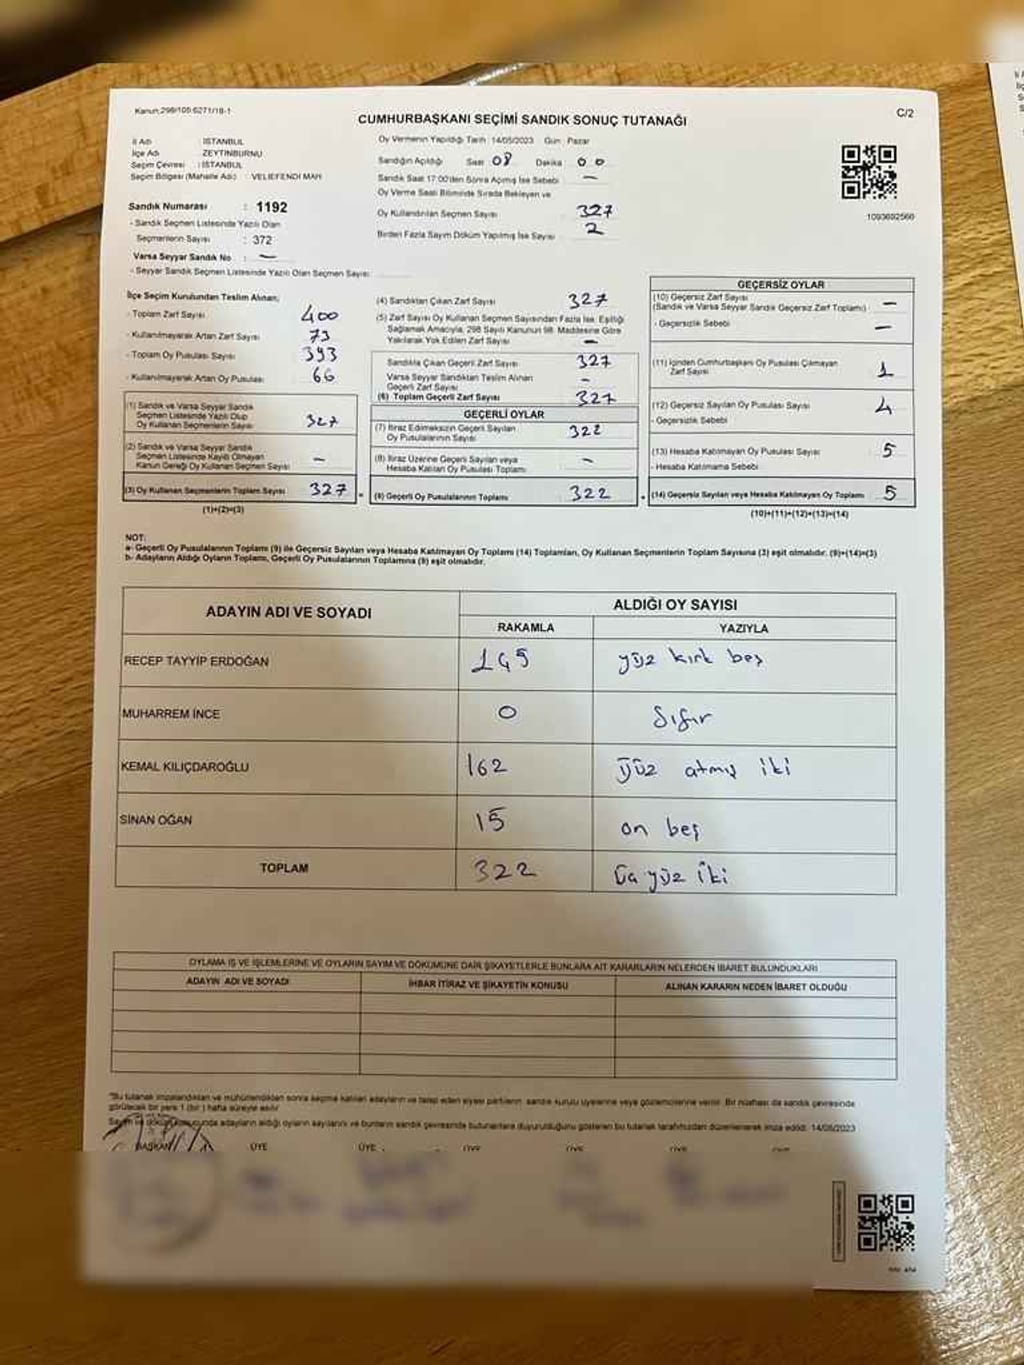 Kanun:298/105:6271/18-1
C/2
CUMHURBAŞKANI SEÇİMİ SANDIK SONUÇ TUTANAĞI
İl Adı : İSTANBUL
İlçe Adı : ZEYTİNBURNU
Seçim Çevresi : İSTANBUL
Seçim Bölgesi (Mahalle Adı) : VELİEFENDİ MAH
Sandık Numarası : 1192
- Sandık Seçmen Listesinde Yazılı Olan
Seçmenlerin Sayısı : 372
Varsa Seyyar Sandık No : —
- Seyyar Sandık Seçmen Listesinde Yazılı Olan Seçmen Sayısı :
Oy Vermenin Yapıldığı Tarih 14/05/2023 Gün Pazar
Sandığın Açıldığı Saat 08 Dakika 00
Sandık Saat 17:00'den Sonra Açılmış İse Sebebi —
Oy Verme Saati Bitiminde Sırada Bekleyen ve
Oy Kullandırılan Seçmen Sayısı 327
Birden Fazla Sayım Döküm Yapılmış İse Sayısı 2
1093692560
İlçe Seçim Kurulundan Teslim Alınan;
- Toplam Zarf Sayısı 400
- Kullanılmayarak Artan Zarf Sayısı 73
- Toplam Oy Pusulası Sayısı 393
- Kullanılmayarak Artan Oy Pusulası 66
(1) Sandık ve Varsa Seyyar Sandık
Seçmen Listesinde Yazılı Olup
Oy Kullanan Seçmenlerin Sayısı 327
(2) Sandık ve Varsa Seyyar Sandık
Seçmen Listesinde Kayıtlı Olmayan
Kanun Gereği Oy Kullanan Seçmen Sayısı —
(3) Oy Kullanan Seçmenlerin Toplam Sayısı 327
(1)+(2)=(3)
(4) Sandıktan Çıkan Zarf Sayısı 327
(5) Zarf Sayısı Oy Kullanan Seçmen Sayısından Fazla İse, Eşitliği
Sağlamak Amacıyla, 298 Sayılı Kanunun 98. Maddesine Göre
Yakılarak Yok Edilen Zarf Sayısı —
Sandıkta Çıkan Geçerli Zarf Sayısı 327
Varsa Seyyar Sandıktan Teslim Alınan
Geçerli Zarf Sayısı —
(6) Toplam Geçerli Zarf Sayısı 327
GEÇERLİ OYLAR
(7) İtiraz Edilmeksizin Geçerli Sayılan
Oy Pusulalarının Sayısı 322
(8) İtiraz Üzerine Geçerli Sayılan veya
Hesaba Katılan Oy Pusulası Toplamı —
(9) Geçerli Oy Pusulalarının Toplamı 322
GEÇERSİZ OYLAR
(10) Geçersiz Zarf Sayısı
(Sandık ve Varsa Seyyar Sandık Geçersiz Zarf Toplamı) —
- Geçersizlik Sebebi —
(11) İçinden Cumhurbaşkanı Oy Pusulası Çıkmayan
Zarf Sayısı 1
(12) Geçersiz Sayılan Oy Pusulası Sayısı 4
- Geçersizlik Sebebi
(13) Hesaba Katılmayan Oy Pusulası Sayısı 5
- Hesaba Katılmama Sebebi
(14) Geçersiz Sayılan veya Hesaba Katılmayan Oy Toplamı 5
(10)+(11)+(12)+(13)=(14)
NOT:
a- Geçerli Oy Pusulalarının Toplamı (9) ile Geçersiz Sayılan veya Hesaba Katılmayan Oy Toplamı (14) Toplamları, Oy Kullanan Seçmenlerin Toplam Sayısına (3) eşit olmalıdır. (9)+(14)=(3)
b- Adayların Aldığı Oyların Toplamı, Geçerli Oy Pusulalarının Toplamına (9) eşit olmalıdır.
ADAYIN ADI VE SOYADI
ALDIĞI OY SAYISI
RAKAMLA YAZIYLA
RECEP TAYYİP ERDOĞAN 145 yüz kırk beş
MUHARREM İNCE 0 Sıfır
KEMAL KILIÇDAROĞLU 162 yüz atmış iki
SİNAN OĞAN 15 on beş
TOPLAM 322 yüz iki
OYLAMA İŞ VE İŞLEMLERİNE VE OYLARIN SAYIM VE DÖKÜMÜNE DAİR ŞİKAYETLERLE BUNLARA AİT KARARLARIN NELERDEN İBARET BULUNDUKLARI
ADAYIN ADI VE SOYADI İHBAR İTİRAZ VE ŞİKAYETİN KONUSU ALINAN KARARIN NEDEN İBARET OLDUĞU
"Bu tutanak imzalandıktan ve mühürlendikten sonra seçime katılan adayların ve talep eden siyasi partilerin sandık kurulu üyelerine veya gözlemcilerine verilir. Bir nüshası da sandık çevresinde
görülecek bir yere 1 (bir) hafta süreyle asılır
Sayım ve döküm sonucunda adayların aldığı oyların sayılarını ve bunların sandık çevresinde bulunanlara duyurulduğunu gösteren bu tutanak tarafımızdan düzenlenerek imza edildi. 14/05/2023
BAŞKAN ÜYE ÜYE ÜYE ÜYE ÜYE ÜYE